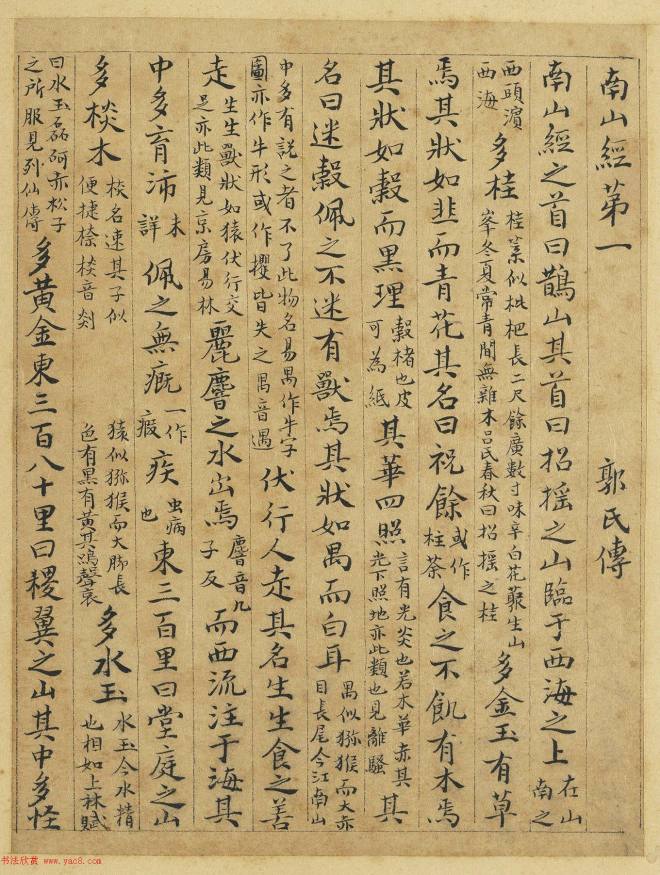 南山經第一 郭氏傳
南山經之首曰鵲山其首曰招搖之山臨于西海之上在山南之
西頭濵西海多桂桂葉似枇杷長二尺餘廣數寸味辛白花藂生山峯冬夏常青間無雜木呂氏春秋曰招搖之桂多金玉有草
焉其狀如韭而青花其名曰祝餘或作桂荼食之不飢有木焉
其狀如穀而黑理穀楮也皮可為紙其華四照言有光炎也若木華赤其光下照地亦此類也見離騷其
名曰迷穀佩之不迷有獸焉其狀如禺而白耳禺似獼猴而大赤目長尾今江南山
中多有說之者不了此物名易禺作牛字圖亦作牛形或作玃皆失之禺音遇伏行人走其名生生食之善
走生生獸狀如猿伏行交足亦此類見京房易林麗麐之水出焉麐音几子反而西流注于海其
中多育沛未詳佩之無一作瘕疾虫病也東三百里曰堂庭之山
多棪木校名速其子似便捷㮈棪音剡猿似獼猴而大脚長色有黑有黃其鳴聲哀多水玉水玉今水精也相如上林賦
曰水玉磊砢赤松子之所服見列仙傳多黃金東三百八十里曰稷翼之山其中多怪
书法欣赏 www.yac8.com